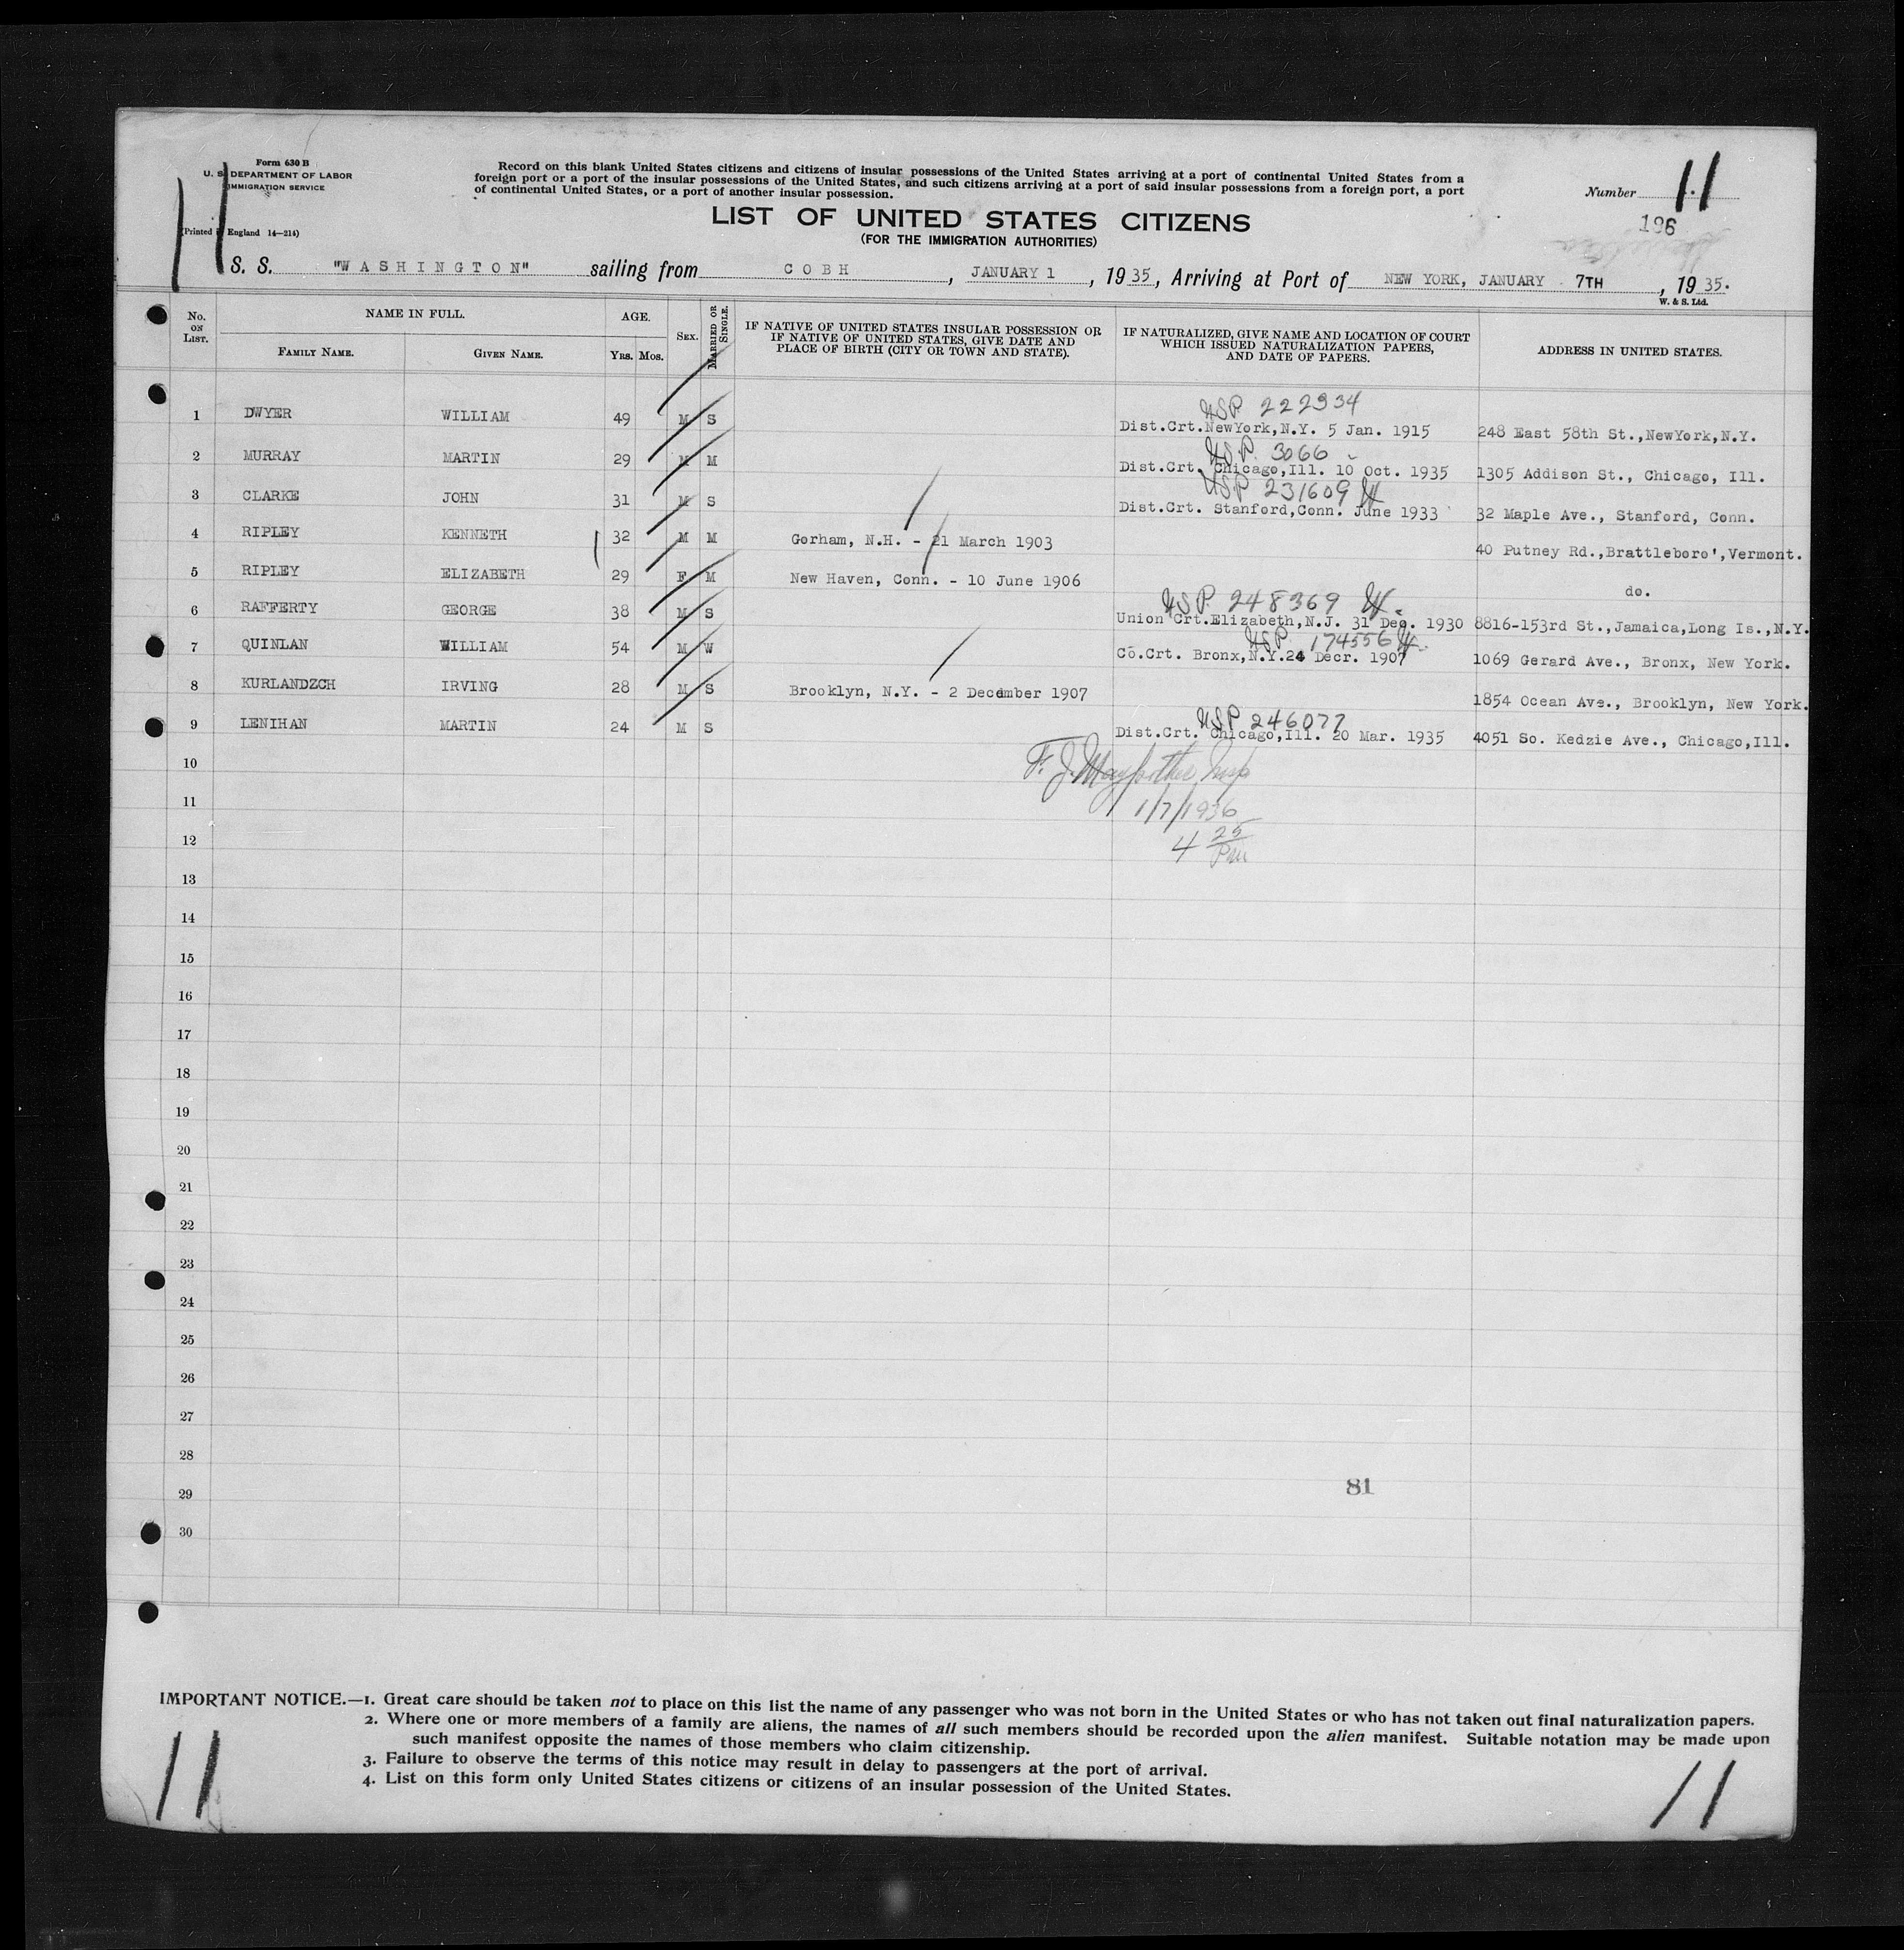 Form 630 B
U. S. DEPARTMENT OF LABOR
IMMIGRATION SERVICE
(Printed in England 14—214)
Record on this blank United States citizens and citizens of insular possessions of the United States arriving at a port of continental United States from a
foreign port or a port of the insular possessions of the United States, and such citizens arriving at a port of said insular possessions from a foreign port, a port
of continental United States, or a port of another insular possession.
Number 11
196
LIST OF UNITED STATES CITIZENS
(FOR THE IMMIGRATION AUTHORITIES)
11
S. S. "WASHINGTON" sailing from COBH, JANUARY 1, 1935, Arriving at Port of NEW YORK, JANUARY 7TH, 1935.
W. & S. Ltd.
No. ON LIST. NAME IN FULL. FAMILY NAME. GIVEN NAME. AGE. YRS. MOS. SEX. MARRIED OR SINGLE. IF NATIVE OF UNITED STATES INSULAR POSSESSION OR IF NATIVE OF UNITED STATES, GIVE DATE AND PLACE OF BIRTH (CITY OR TOWN AND STATE). IF NATURALIZED, GIVE NAME AND LOCATION OF COURT WHICH ISSUED NATURALIZATION PAPERS, AND DATE OF PAPERS. ADDRESS IN UNITED STATES.
USP 222934
1 DWYER WILLIAM 49 M S Dist.Crt.NewYork,N.Y. 5 Jan. 1915 248 East 58th St.,NewYork,N.Y.
USP. 3066
2 MURRAY MARTIN 29 M M Dist.Crt. Chicago,Ill. 10 Oct. 1935 1305 Addison St., Chicago, Ill.
USP 231609
3 CLARKE JOHN 31 M S Dist.Crt. Stanford,Conn. June 1933 32 Maple Ave., Stanford, Conn.
4 RIPLEY KENNETH 32 M M Gorham, N.H. - 21 March 1903 40 Putney Rd.,Brattleboro',Vermont.
5 RIPLEY ELIZABETH 29 F M New Haven, Conn. - 10 June 1906 do.
USP. 248369
6 RAFFERTY GEORGE 38 M S Union Crt.Elizabeth,N.J. 31 Deo. 1930 8816-153rd St.,Jamaica,Long Is.,N.Y.
USP 174556
7 QUINLAN WILLIAM 54 M W Co.Crt. Bronx,N.Y.24 Decr. 1907 1069 Gerard Ave., Bronx, New York.
8 KURLANDZCH IRVING 28 M S Brooklyn, N.Y. - 2 December 1907 1854 Ocean Ave., Brooklyn, New York.
USP 246077
9 LENIHAN MARTIN 24 M S Dist.Crt. Chicago,Ill. 20 Mar. 1935 4051 So. Kedzie Ave., Chicago,Ill.
10
F. J.
11
1/7/1936
12
4 25 PM
13
14
15
16
17
18
19
20
21
22
23
24
25
26
27
28
81
29
30
IMPORTANT NOTICE.—1. Great care should be taken not to place on this list the name of any passenger who was not born in the United States or who has not taken out final naturalization papers.
2. Where one or more members of a family are aliens, the names of all such members should be recorded upon the alien manifest. Suitable notation may be made upon
such manifest opposite the names of those members who claim citizenship.
3. Failure to observe the terms of this notice may result in delay to passengers at the port of arrival.
4. List on this form only United States citizens or citizens of an insular possession of the United States.
11
11